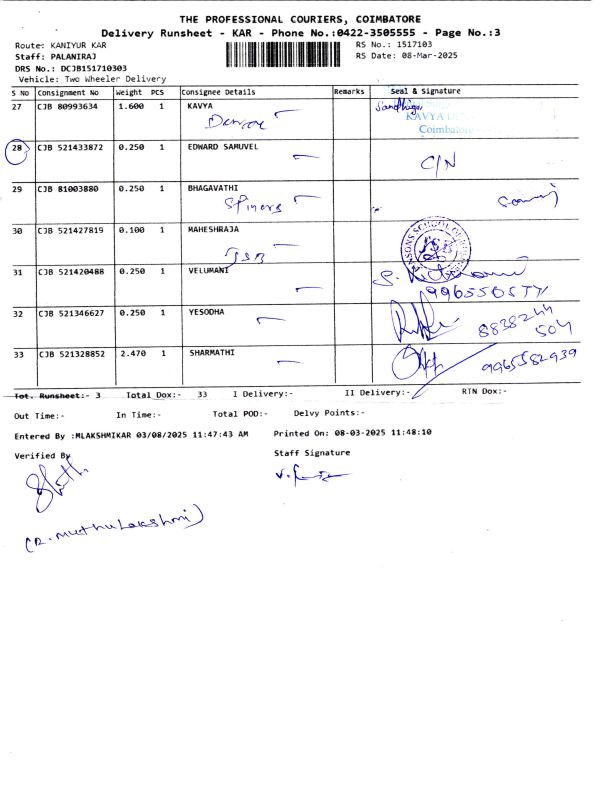 THE PROFESSIONAL COURIERS, COIMBATORE
Delivery Runsheet - KAR - Phone No.:0422-3505555 - Page No.:3
Route: KANIYUR KAR RS No.: 1517103
Staff: PALANIRAJ RS Date: 08-Mar-2025
DRS No.: DCJB151710303
Vehicle: Two Wheeler Delivery
S No Consignment No Weight PCS Consignee Details Remarks Seal & Signature
27 CJB 80993634 1.600 1 KAVYA
KAVYA
Coimbatore
28 CJB 521433872 0.250 1 EDWARD SAMUVEL
C/N
29 CJB 81003880 0.250 1 BHAGAVATHI
30 CJB 521427819 0.100 1 MAHESHRAJA
JSB
31 CJB 521420488 0.250 1 VELUMANI
32 CJB 521346627 0.250 1 YESODHA
8838244
504
33 CJB 521328852 2.470 1 SHARMATHI
9965582939
Tot. Runsheet:- 3 Total Dox:- 33 I Delivery:- II Delivery:- RTN Dox:-
Out Time:- In Time:- Total POD:- Delvy Points:-
Entered By :MLAKSHMIKAR 03/08/2025 11:47:43 AM Printed On: 08-03-2025 11:48:10
Verified By Staff Signature
(R. Muthulakshmi)